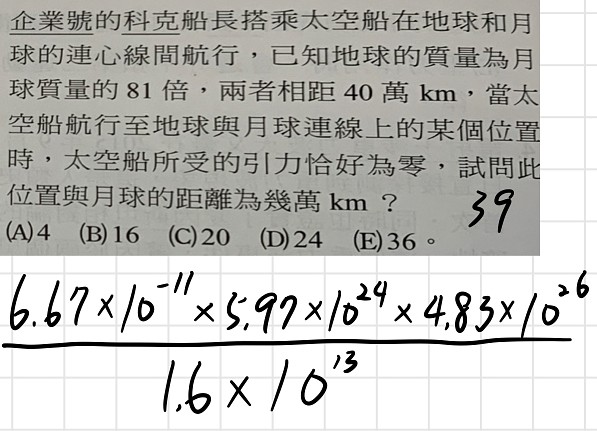 企業號的科克船長搭乘太空船在地球和月
球的連心線間航行，已知地球的質量為月
球質量的 81 倍，兩者相距 40 萬 km，當太
空船航行至地球與月球連線上的某個位置
時，太空船所受的引力恰好為零，試問此
位置與月球的距離為幾萬 km ？
39
(A)4 (B)16 (C)20 (D)24 (E)36。
6.67×10⁻¹¹×5.97×10²⁴×4.83×10²⁶
1.6×10¹³